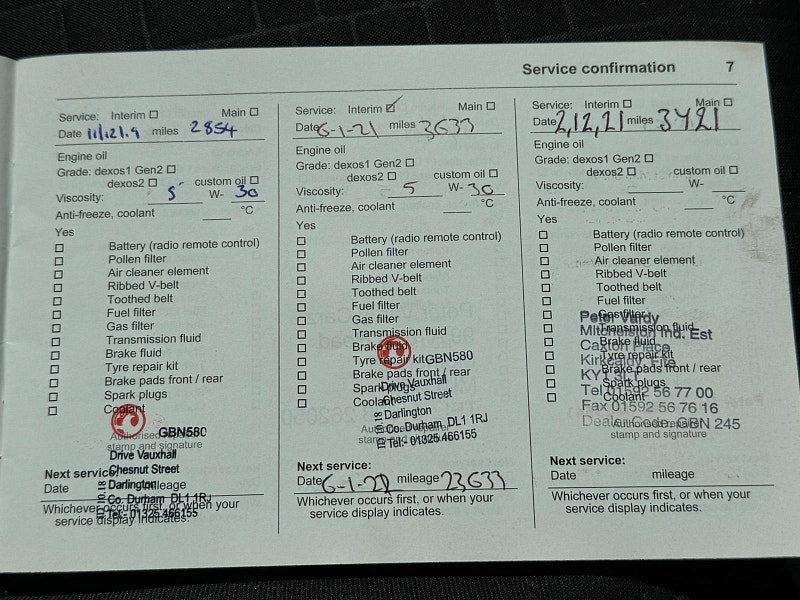 Service confirmation 7
Service: Interim Main
Date 11/12/19 miles 2854
Engine oil
Grade: dexos1 Gen2
dexos2 custom oil
Viscosity: 5 W- 30
Anti-freeze, coolant °C
Yes
Battery (radio remote control)
Pollen filter
Air cleaner element
Ribbed V-belt
Toothed belt
Fuel filter
Gas filter
Transmission fluid
Brake fluid
Tyre repair kit
Brake pads front / rear
Spark plugs
Coolant
GBN580
Authorised
stamp and signature
Drive Vauxhall
Chesnut Street
Darlington
Co. Durham DL1 1RJ
Tel:- 01325 466155
Next service:
Date mileage
Whichever occurs first, or when your
service display indicates.
Service: Interim Main
Date 6-1-21 miles 3633
Engine oil
Grade: dexos1 Gen2
dexos2 custom oil
Viscosity: 5 W- 30
Anti-freeze, coolant °C
Yes
Battery (radio remote control)
Pollen filter
Air cleaner element
Ribbed V-belt
Toothed belt
Fuel filter
Gas filter
Transmission fluid
Brake fluid
Tyre repair kit GBN580
Brake pads front / rear
Spark plugs
Coolant
Drive Vauxhall
Chesnut Street
Darlington
Co. Durham DL1 1RJ
Tel:- 01325 466155
stamp and signature
Next service:
Date 6-1-22 mileage 23633
Whichever occurs first, or when your
service display indicates.
Service: Interim Main
Date 2,12,21 miles 3421
Engine oil
Grade: dexos1 Gen2
dexos2 custom oil
Viscosity: W-
Anti-freeze, coolant °C
Yes
Battery (radio remote control)
Pollen filter
Air cleaner element
Ribbed V-belt
Toothed belt
Fuel filter
Gas filter
Transmission fluid
Brake fluid
Tyre repair kit
Brake pads front / rear
Spark plugs
Coolant
Peter Vardy
Mitchelston Ind. Est
Caxton Place
Kirkcaldy, Fife
Tel 01592 56 77 00
Fax 01592 56 76 16
Dealer Code: GBN 245
stamp and signature
Next service:
Date mileage
Whichever occurs first, or when your
service display indicates.